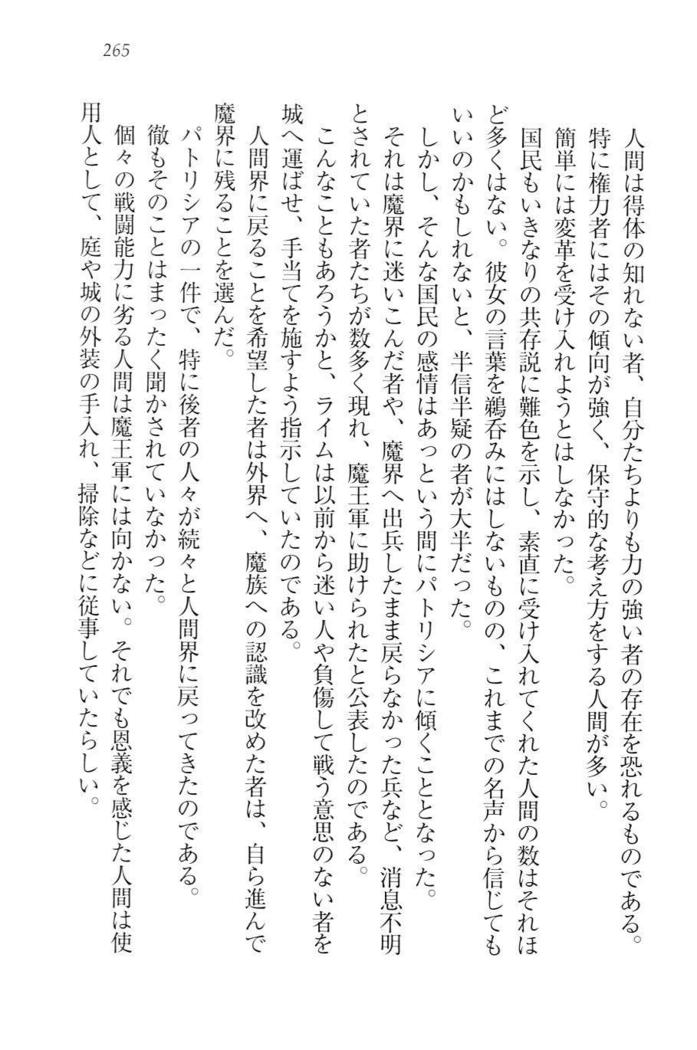 265
人間は得体の知れない者、自分たちよりも力の強い者の存在を恐れるものである。
特に権力者にはその傾向が強く、保守的な考え方をする人間が多い。
簡単には変革を受け入れようとはしなかった。
国民もいきなりの共存説に難色を示し、素直に受け入れてくれた人間の数はそれほ
ど多くはない。彼女の言葉を鵜呑みにはしないものの、これまでの名声から信じても
いいのかもしれないと、半信半疑の者が大半だった。
しかし、そんな国民の感情はあっという間にパトリシアに傾くこととなった。
それは魔界に迷いこんだ者や、魔界へ出兵したまま戻らなかった兵など、消息不明
とされていた者たちが数多く現れ、魔王軍に助けられたと公表したのである。
こんなこともあろうかと、ライムは以前から迷い人や負傷して戦う意思のない者を
城へ運ばせ、手当てを施すよう指示していたのである。
人間界に戻ることを希望した者は外界へ、魔族への認識を改めた者は、自ら進んで
魔界に残ることを選んだ。
パトリシアの一件で、特に後者の人々が続々と人間界に戻ってきたのである。
徹もそのことはまったく聞かされていなかった。
個々の戦闘能力に劣る人間は魔王軍には向かない。それでも恩義を感じた人間は使
用人として、庭や城の外装の手入れ、掃除などに従事していたらしい。